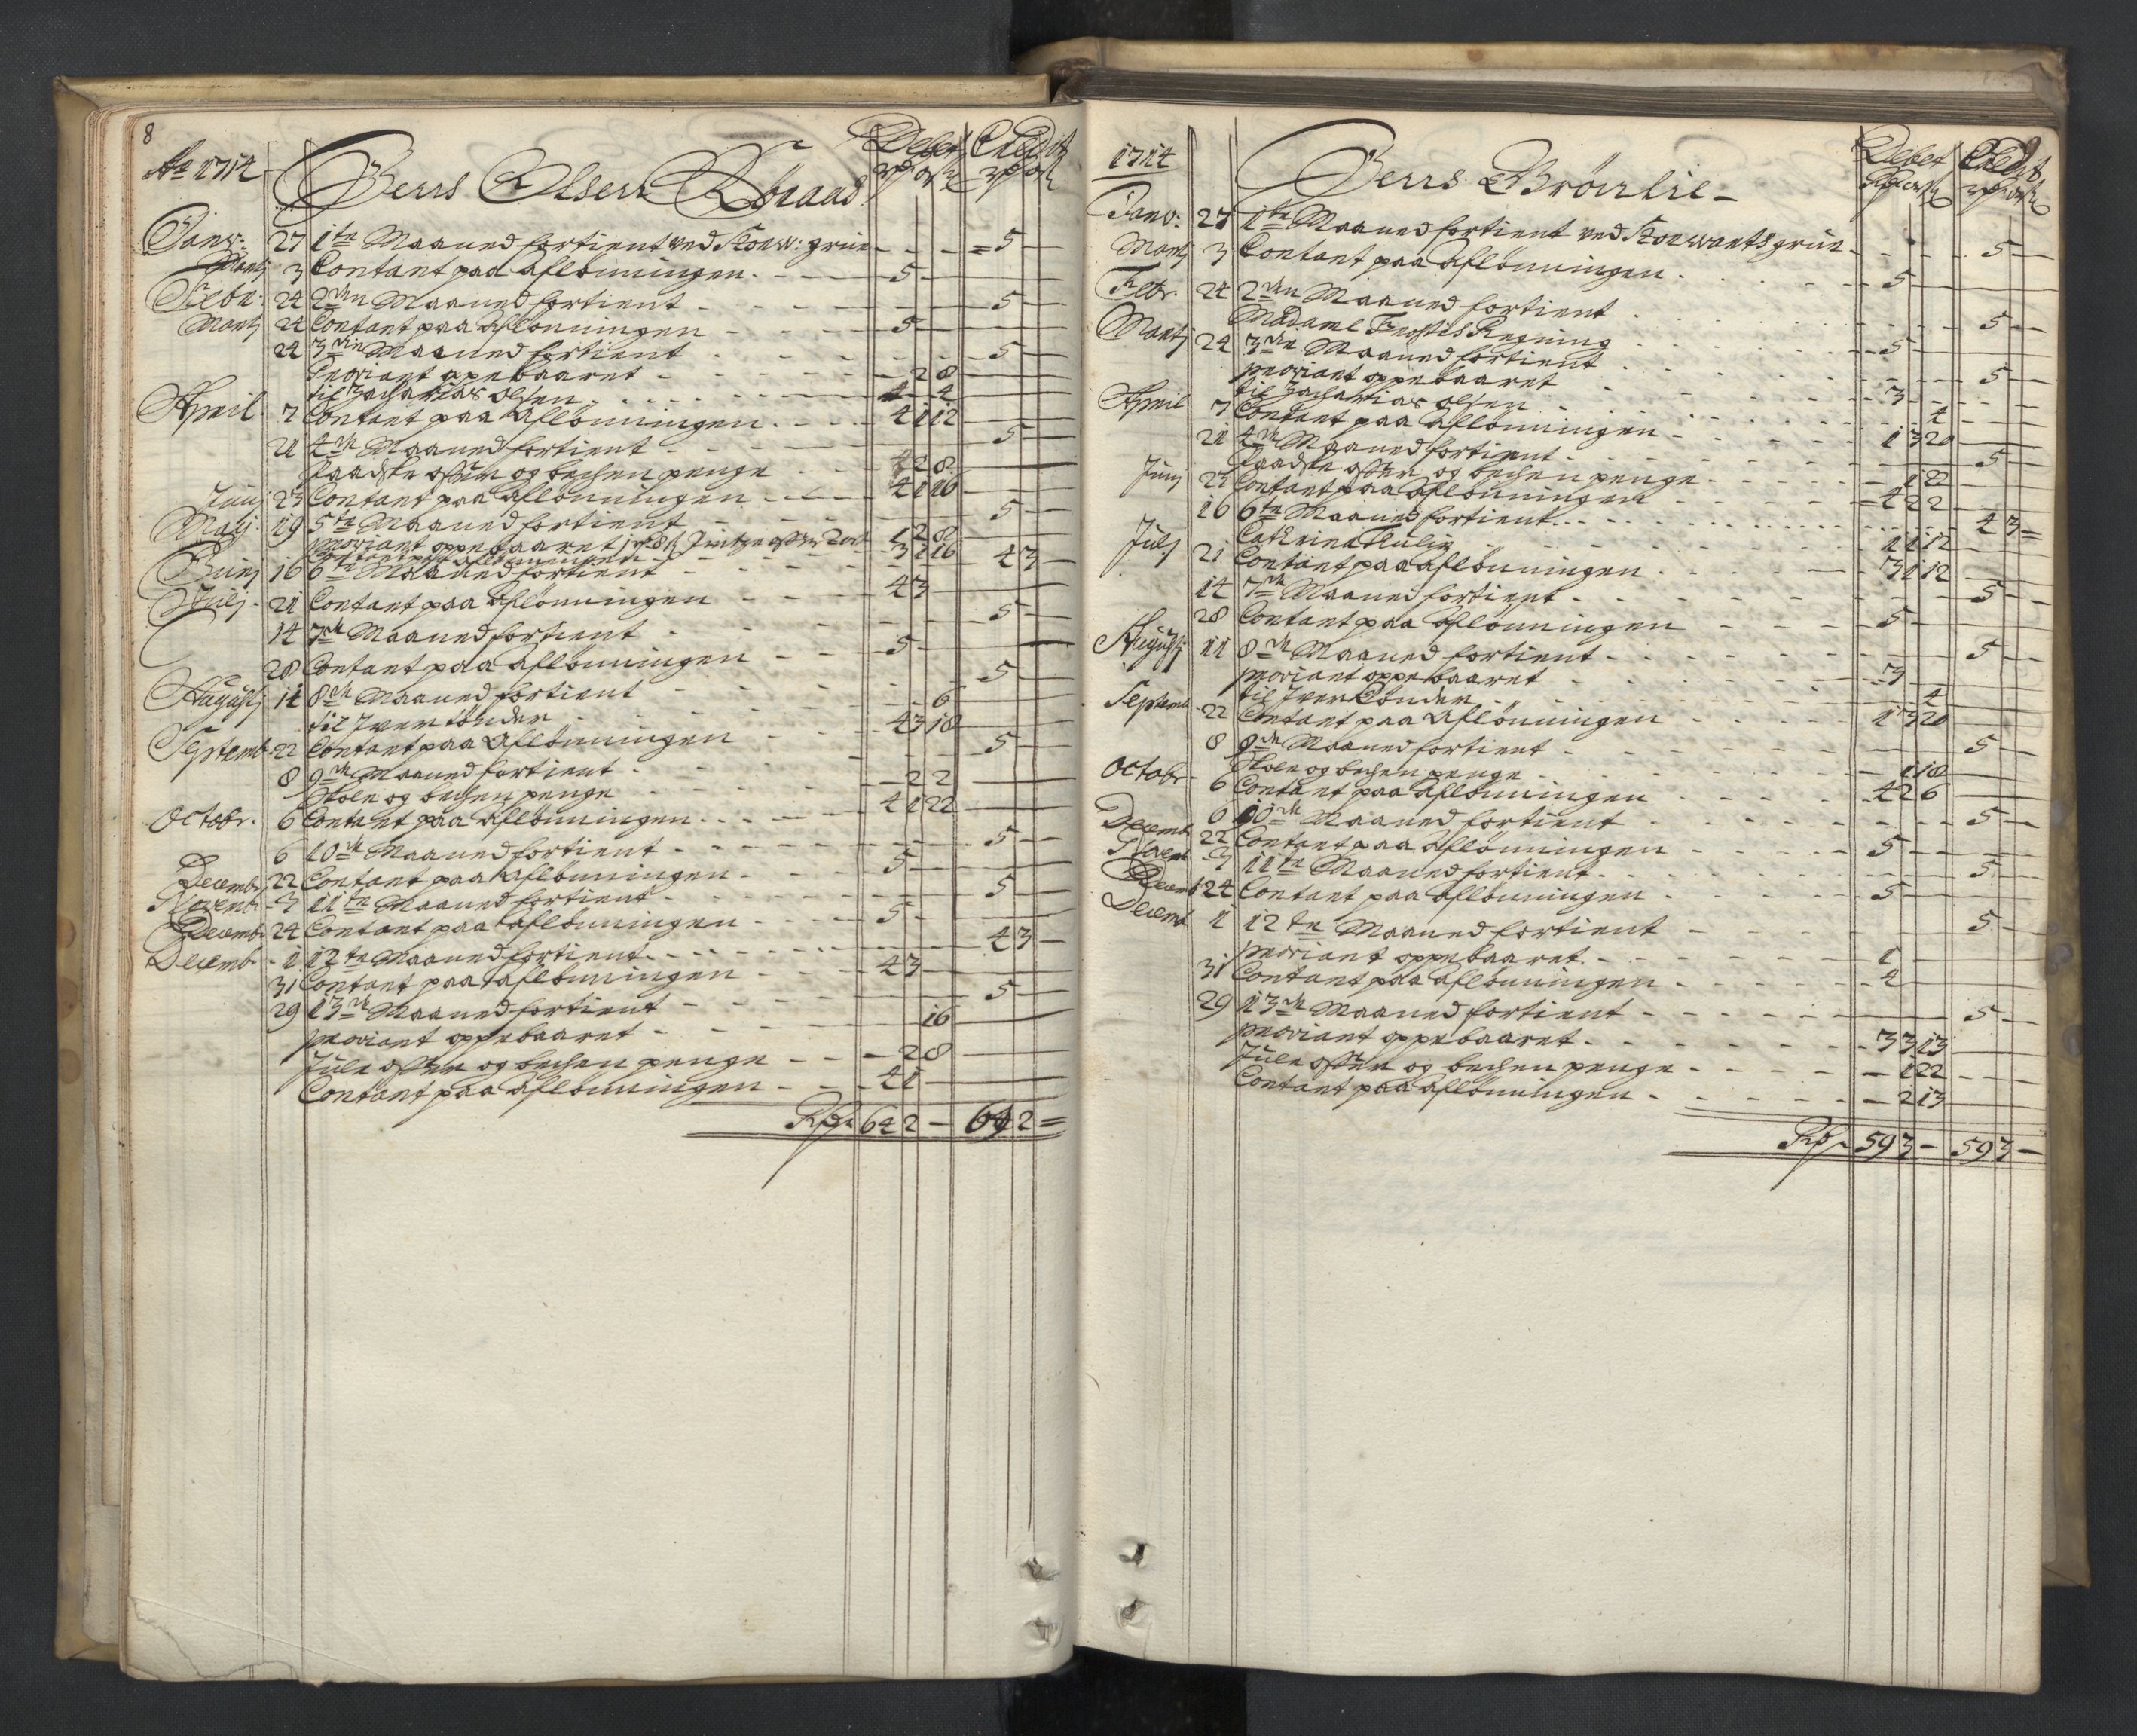 8
Ao 1714
Debet Credit
Berns Olsen
Janv: 27 1te Maaned fortient ved Storw: grue - - - 5 -
Martj 3 Contant paa aflönningen - - 5 -
Febr. 24 2den Maaned fortient - - - 5 -
Martj 24 Contant paa Aflönningen - - 5 -
24 3die Maaned fortient - - - 5 -
Proviant opebaaret - - - 2 8
til Zacharias olsen - - - 4
Apriil 7 Contant paa Aflönningen - - 4 1 12
21 4de Maaned fortient - - - 5 -
Faadske offer og bechen penge - - 2 8
Junj 23 Contant paa Aflönningen - - 4 1 16
Maij 19 5te Maaned fortient - - - 5 -
proviant oppebaaret 1 2 8
Contant paa aflönningen - - 3 1 16
Junj 16 6te Maaned fortient - - - 4 3
Julj 21 Contant paa Aflönningen - - 4 3
14 7de Maaned fortient - - - 5 -
28 Contant paa aflönningen - - 5 -
Augustj 11 8de Maaned fortient - - - 5 -
til Iver tönder - - - 6
Septemb. 22 Contant paa Aflönningen - - 4 3 18
8 9de Maaned fortient - - - 5 -
Skole og bechen penge - - 2 2
Octobr. 6 Contant paa aflönningen - - 4 1 22
6 10de Maaned fortient - - - 5 -
Decembr 22 Contant paa Aflönningen - - 5 -
Novembr - 3 11te Maaned fortient - - - 5 -
Decemb 24 Contant paa aflönningen - - 5 -
Decemb - 1 12te Maaned fortient - - - 4 3 -
31 Contant paa aflönningen - - 4 3
29 13de Maaned fortient - - - 5 -
proviant oppebaaret - - - 16
Jule offer og bechen penge - - 2 8
Contant paa aflönningen - - 4 1
Rdr 64 2 - 64 2 =
1714
Debet Credit
Berns Brönlie -
Janv: 27 1te Maaned fortient ved Storwarts grue - - 5 -
Martj 3 Contant paa Aflönningen - - 5 -
Febr. 24 2den Maaned fortient - - - 5 -
Madame Regning - - 5 -
Martj 24 3die Maaned fortient - - - 5 -
proviant oppebaaret - - 3
til Zacharias olsen - - - 4
Apriil 7 Contant paa Aflönningen - - 1 3 20
21 4de Maaned fortient - - - 5 -
Faadske offer og bechen penge - - 1 22
Junj 23 Contant paa aflönningen - - 4 2 2
16 6te Maaned fortient - - - 4 3 =
Cathrina - - 1 1 12
Julj 21 Contant paa aflönningen - - 3 1 12
14 7de Maaned fortient - - - 5 -
28 Contant paa Aflönningen - - 5 -
Augustj 11 8de Maaned fortient - - - 5 -
proviant oppebaaret - - 3
til Iver Tönder - - - 4
Septemb. 22 Contant paa Aflönningen - - 1 3 20
8 9de Maaned fortient - - - 5 -
Skole og bechen penge - - 1 18
Octobr - 6 Contant paa Aflönningen - - 4 2 6
6 10de Maaned fortient - - - 5 -
Decemb 22 Contant paa Aflönningen - - 5 -
Novemb - 3 11te Maaned fortient - - - 5 -
Decemb 24 Contant paa Aflönningen - - 5 -
Decemb 1 12te Maaned fortient - - - 5 -
proviant oppebaaret - - 1
31 Contant paa aflönningen - - 4
29 13de Maaned fortient - - - 5 -
proviant oppebaaret - - 3 3 13
Jule offer og bechen penge - - 1 22
Contant paa aflönningen - - 2 13
Rdr 59 3 - 59 3 -